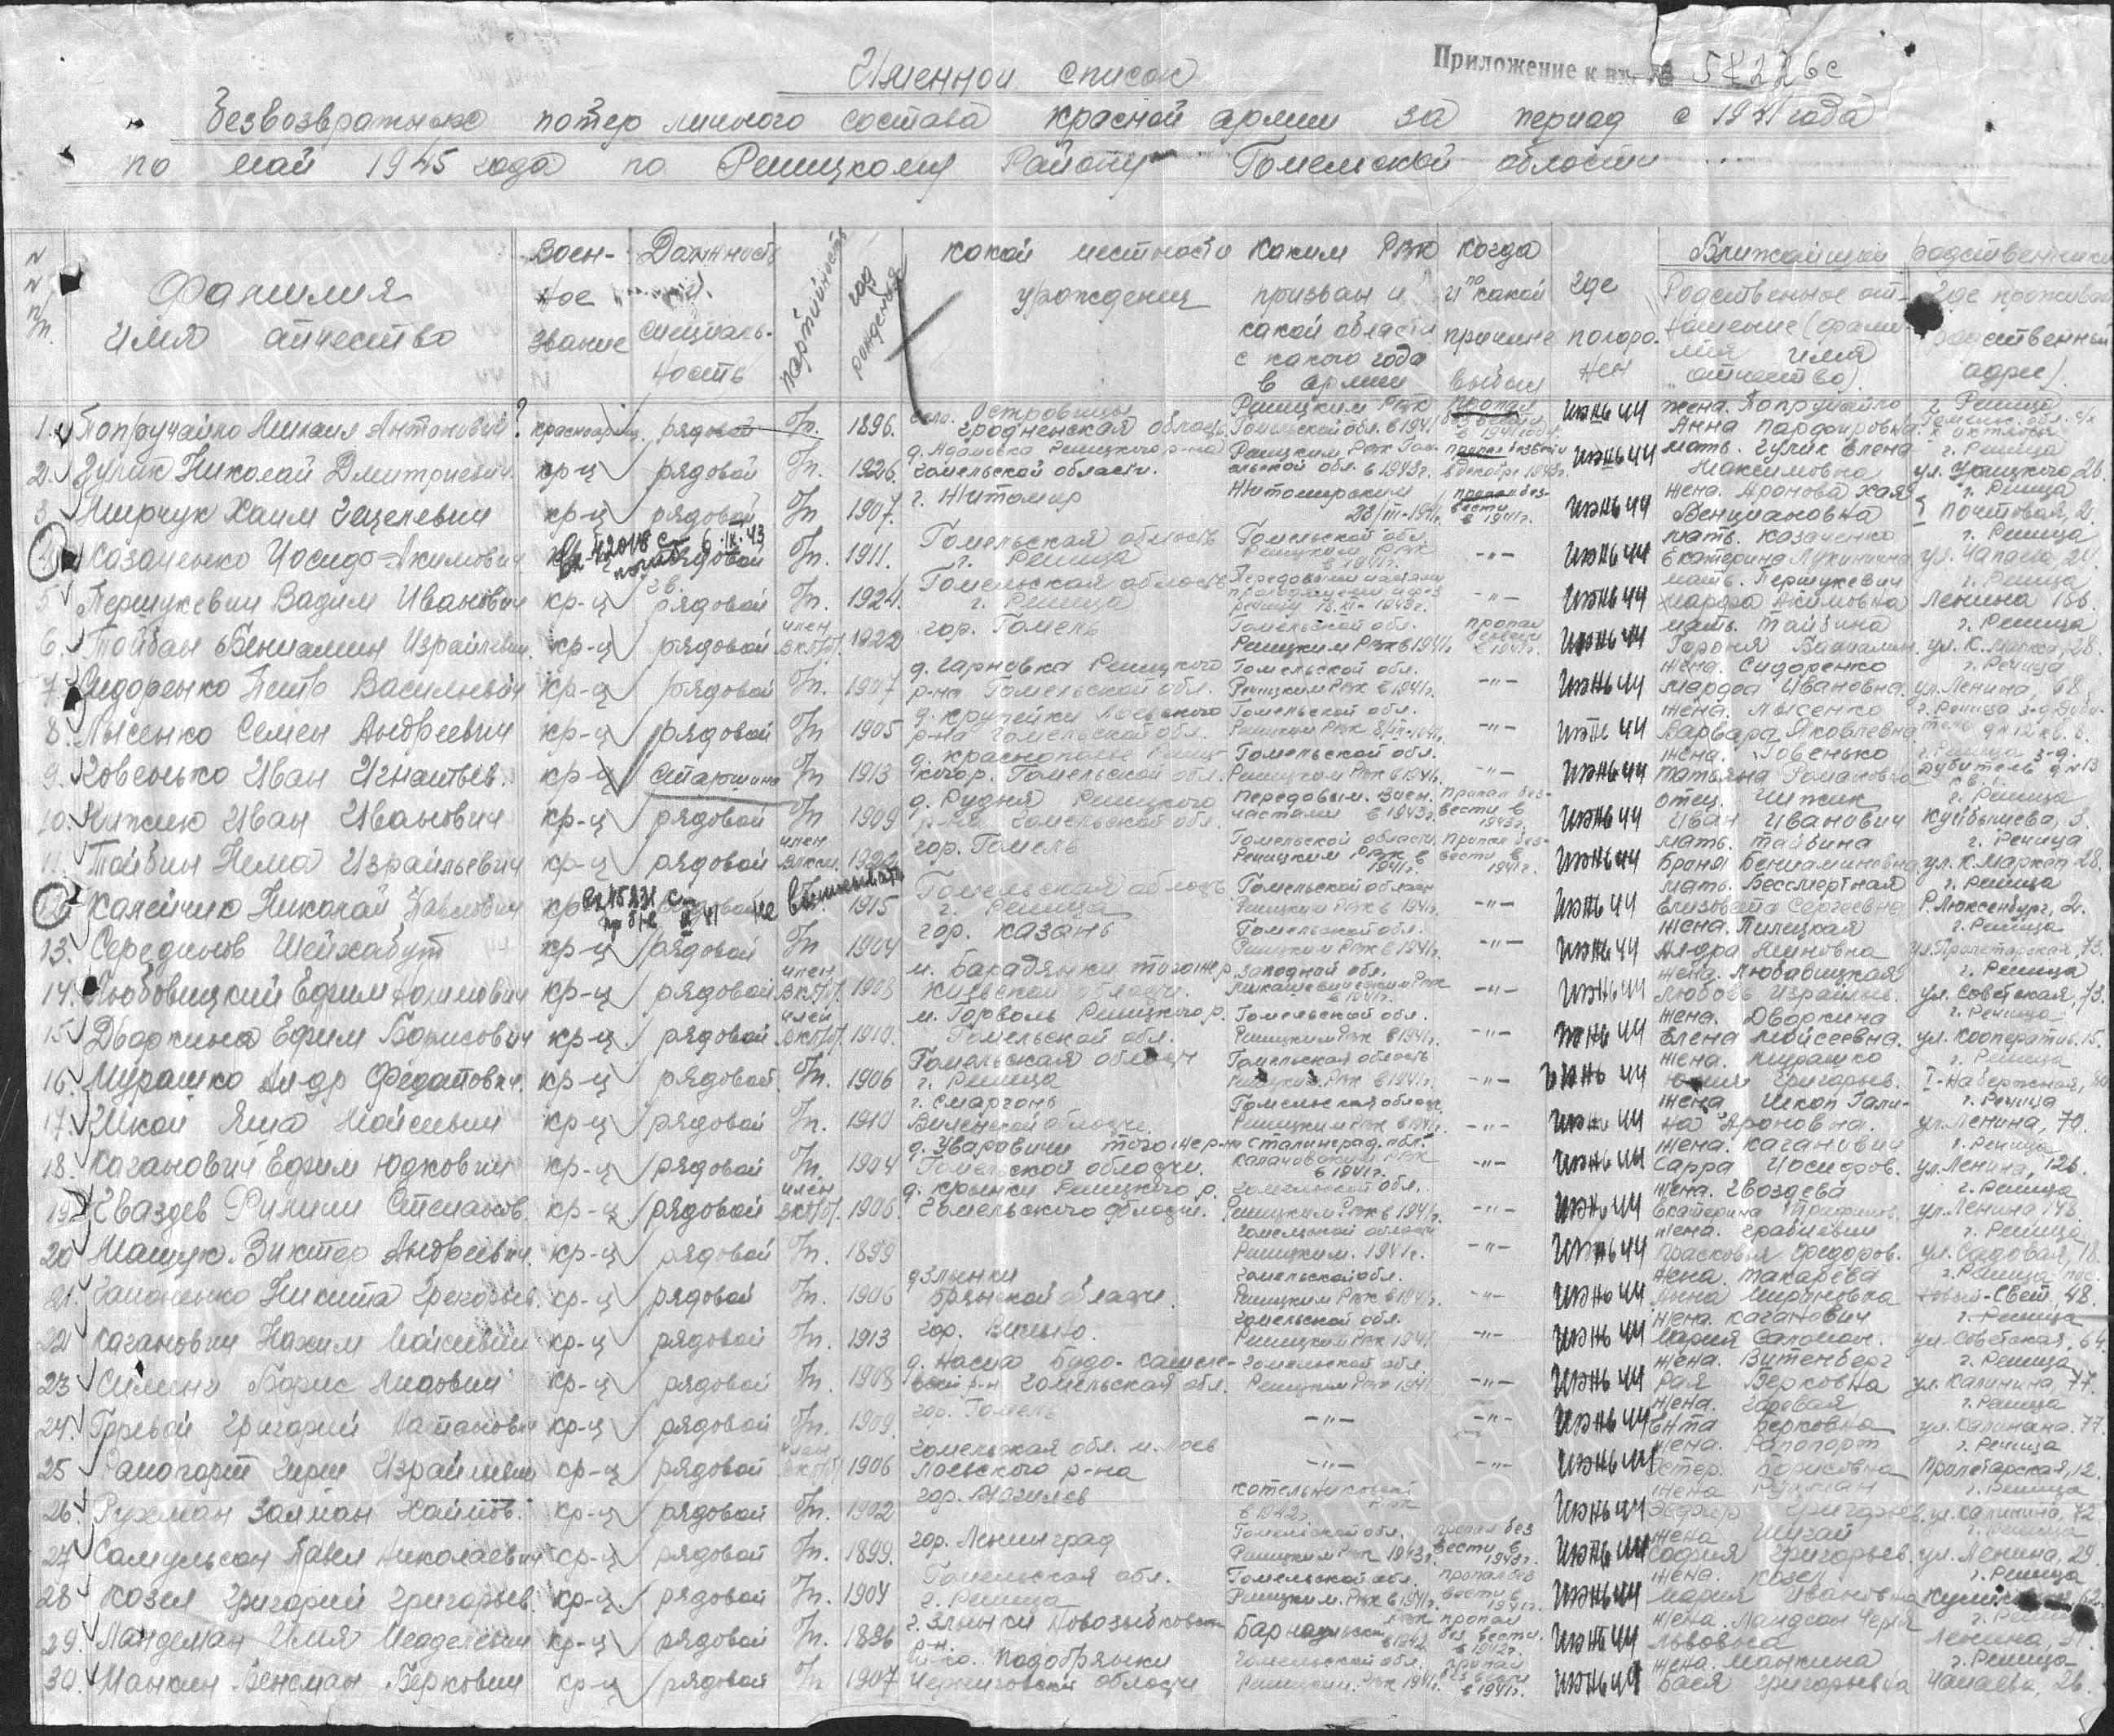 Приложение к вх. № 58226с
Именной список
безвозвратных потер личного состава красной армии за период с 1941 года
по май 1945 года по Речицкому Району Гомельской области
N N п/п. Фамилия имя отчество Воен-ное звание Должность и специаль-ность партийность год рождения какой местности урожденец Каким РВК призван и какой области с какого года в армии когда и по какой причине выбыл где похоро-нен Ближайший родственники
Родственное от-ношение (фами-лия имя отчество). Где проживает родственник адрес).
1. Попручайло Михаил Антонович ? красноарм. рядовой б/п. 1896. Островицы Гродненская область Речицким РВК Гомельской обл. в 1941 пропал без вести в 1941 году июнь 44 жена. Попручайло Анна Парфировна г. Речица
2. Гулик Николай Дмитриевич. кр-ц рядовой б/п. 1926. д. Адамовка Речицкого р-на Гомельской области. Речицким РВК Гомельской обл. в 1943г. пропал без вести в декабре 1943г. июнь 44 мать. Гулик Елена Максимовна г. Речица ул. Урицкого, 26.
3 Мирчук Хаим кр-ц рядовой б/п 1907. г. Житомир Житомирским 28/III-1941г. пропал без-вести в 1941г. июнь 44 жена. Аронова Хая Венциановна г. Речица Почтовая, 2.
4 Казаченко Иосиф Якимович вх 42018 с 6.IX.43 погиб рядовой б/п. 1911. Гомельская область г. Речица Гомельской обл. Речицким РВК в 1941г. -"- июнь 44 мать. Казаченко Екатерина Лукинична г. Речица ул. Чапаева, 24.
5 Першукевич Вадим Иванович кр-ц гв. рядовой б/п. 1924. Гомельская область г. Речица Передовыми частями проходящими через Речицу 18.XI-1943г. -"- июнь 44 мать. Першукевич Марфа Акимовна г. Речица Ленина 166.
6. Тайбан Бениамин Израилевич. кр-ц рядовой член ВКП/б/. 1922 гор. Гомель Гомельской обл. Речицким РВК в 1941г. пропал без вести в 1941г. июнь 44 мать. Тайбина г. Речица ул. К. Маркса, 28.
7. Сидоренко Петр Васильевич кр-ц рядовой б/п. 1907 д. Гарновка Речицкого р-на Гомельской обл. Гомельской обл. Речицким РВК в 1941г. -"- июнь 44 жена. Сидоренко Марфа Ивановна. г. Речица ул. Ленина, 68.
8. Лысенко Семен Андреевич кр-ц рядовой б/п 1905 д. Крупейки Лоевского р-на Гомельской обл. Гомельской обл. Речицким РВК -"- июнь 44 жена. Лысенко Варвара Яковлевна г. Речица
9. Ковенько Иван Игнатьев. кр-ц старшина б/п 1913 д. Краснополье Гомельской обл. Гомельской обл. Речицким РВК в 1941г. -"- июнь 44 жена. Ковенько Татьяна Романовна г. Речица з-д. Дубитель д. N 13
10. Чижик Иван Иванович кр-ц рядовой б/п 1909 д. Рудня Речицкого р-на Гомельской обл. Передовым. воен. частями в 1943г. пропал без-вести в 1943г. июнь 44 отец. Чижик Иван Иванович г. Речица Куйбышева, 3.
11. Тайбин Нема Израильевич кр-ц рядовой член ВЛКСМ. гор. Гомель Гомельской области. Речицким РВК в 1941г. пропал без-вести в 1941г. июнь 44 мать. Тайбина Броня Бениаминовна г. Речица ул. К. Маркса 28.
12 Калейчик Николай Павлович кр не высылать 1915 Гомельская область г. Речица Гомельской области Речицким РВК в 1941г. -"- июнь 44 мать. Бессмертная Елизовета Сергеевна г. Речица Р. Люксенбург, 2.
13. Серединов Шейхабут кр-ц рядовой б/п 1904 гор. Казань Гомельской обл. Речицким РВК в 1941г. -"- июнь 44 жена. Пилецкая Ал-дра Миновна г. Речица ул. Пролетарская, 73.
14. Любовицкий Ефим кр-ц рядовой член ВКП/б/. 1903 м. Барадянки того же р. Киевской области. Западной обл. в 1941г. -"- июнь 44 жена. Любавицкая Любовь Израйлев. г. Речица ул. Советская, 73.
15 Дворкина Ефим Борисович кр-ц рядовой член ВКП/б/. 1910. м. Горволь Речицкого р. Гомельской обл. Гомельской обл. Речицким РВК в 1941г. -"- июнь 44 жена. Дворкина Елена Мойсеевна. г. Речица ул. Кооператив. 15.
16. Мурашко Ал-др Федотович. кр-ц рядовой б/п. 1906 Гомельская область г. Речица Гомельская область Речицким РВК в 1941г. -"- июнь 44 жена. Мурашко Григорьев. г. Речица I-Набережная,
17. Шкоп Яша Мойсеевич кр-ц рядовой б/п. 1910 г. Сморгонь Виленской области. Гомельская област. Речицким РВК в 1941г. -"- июнь 44 жена Шкоп Гали-на Ароновна. г. Речица ул. Ленина, 70.
18. Каганович Ефим Юдкович кр-ц рядовой б/п. 1904 д. Уваровичи того же р-на Гомельской области. Сталинград. обл. в 1941г. -"- июнь 44 жена. Каганович Сарра Иосифов. г. Речица ул. Ленина, 126.
19 Гваздев Филипп Степанов. кр-ц рядовой член ВКП/б/. 1906. д. Крынки Речицкого р. Гомельского области. Гомельской обл. Речицким РВК в 1941г. -"- июнь 44 жена. Гвоздева Екатерина Трофимов. г. Речица ул. Ленина 148
20 Мащук Виктор Андреевич. кр-ц рядовой б/п. 1899 Гомельской области Речицким. 1941г. -"- июнь 44 жена. Прасковья Федоров. г. Речица ул. Садовая, 18.
21. Никита Григорьев. кр-ц рядовой б/п. 1906 д Злынки Брянской области. Гомельской обл. Речицким РВК в 1941г. -"- июнь 44 жена. Макарева Анна Мироновка г. Речица пос. Новый-Свет, 48.
22 Каганович Нахим Мойсеевич кр-ц рядовой б/п. 1913 гор. Вильно. Гомельской обл. Речицким РВК 1941 -"- июнь 44 жена. Каганович Мария Саломон. г. Речица ул. Советская, 64.
23 Борис кр-ц рядовой б/п. 1908 Гомельская обл. Гомельской обл. Речицким РВК 1941 -"- июнь 44 жена. Витенберг Рая Верковна г. Речица ул. Калинина, 77.
24. Горевой Григорий Натанович кр-ц рядовой б/п. 1909. гор. Гомель -"- -"- июнь 44 жена. Горевая Ента Берковна г. Речица ул. Калинина. 77.
25 Рапопорт Гирш Израйлевич кр-ц рядовой член ВКП/б/ 1906 Гомельская обл. м. Лоев Лоевского р-на -"- -"- июнь 44 жена. Рапопорт Эстер. Борисовна г. Речица Пролетарская, 12.
26. Рухман Залман Хаимов. кр-ц рядовой б/п. 1902 гор. Могилев в 1942г. июнь 44 жена Рухман Григорьев. г. Речица ул. Калинина, 72
27 Самульсон Павел Николаевич кр-ц рядовой б/п. 1899. гор. Ленинград Гомельской обл. Речицким РВК 1943г. пропал без вести в 1943г. июнь 44 жена Шигай София Григорьев. г. Речица ул. Ленина, 29.
28 Козел Григорий Григорьев. кр-ц. рядовой б/п. 1904 Гомельская обл. г. Речица Гомельской обл. Речицким РВК в 1941г. пропал без вести в 1941г. июнь 44 жена. Козел Мария Ивановна г. Речица 62.
29. Ландсман Илья кр-ц рядовой б/п. 1896 г. Злынки Новозыбков р-н. РВК в 1942 пропал без вести. в 1942г. июнь 44 жена. Львовна г. Речица Ленина,
30. Манкин Бенсман Беркович кр-ц рядовой б/п 1907 Черниговской области Гомельской обл. Речицким. РВК 1941г. пропал без вести в 1941г. июнь 44 жена. Манкина Бася Григорьевна г. Речица Чапаева, 26.